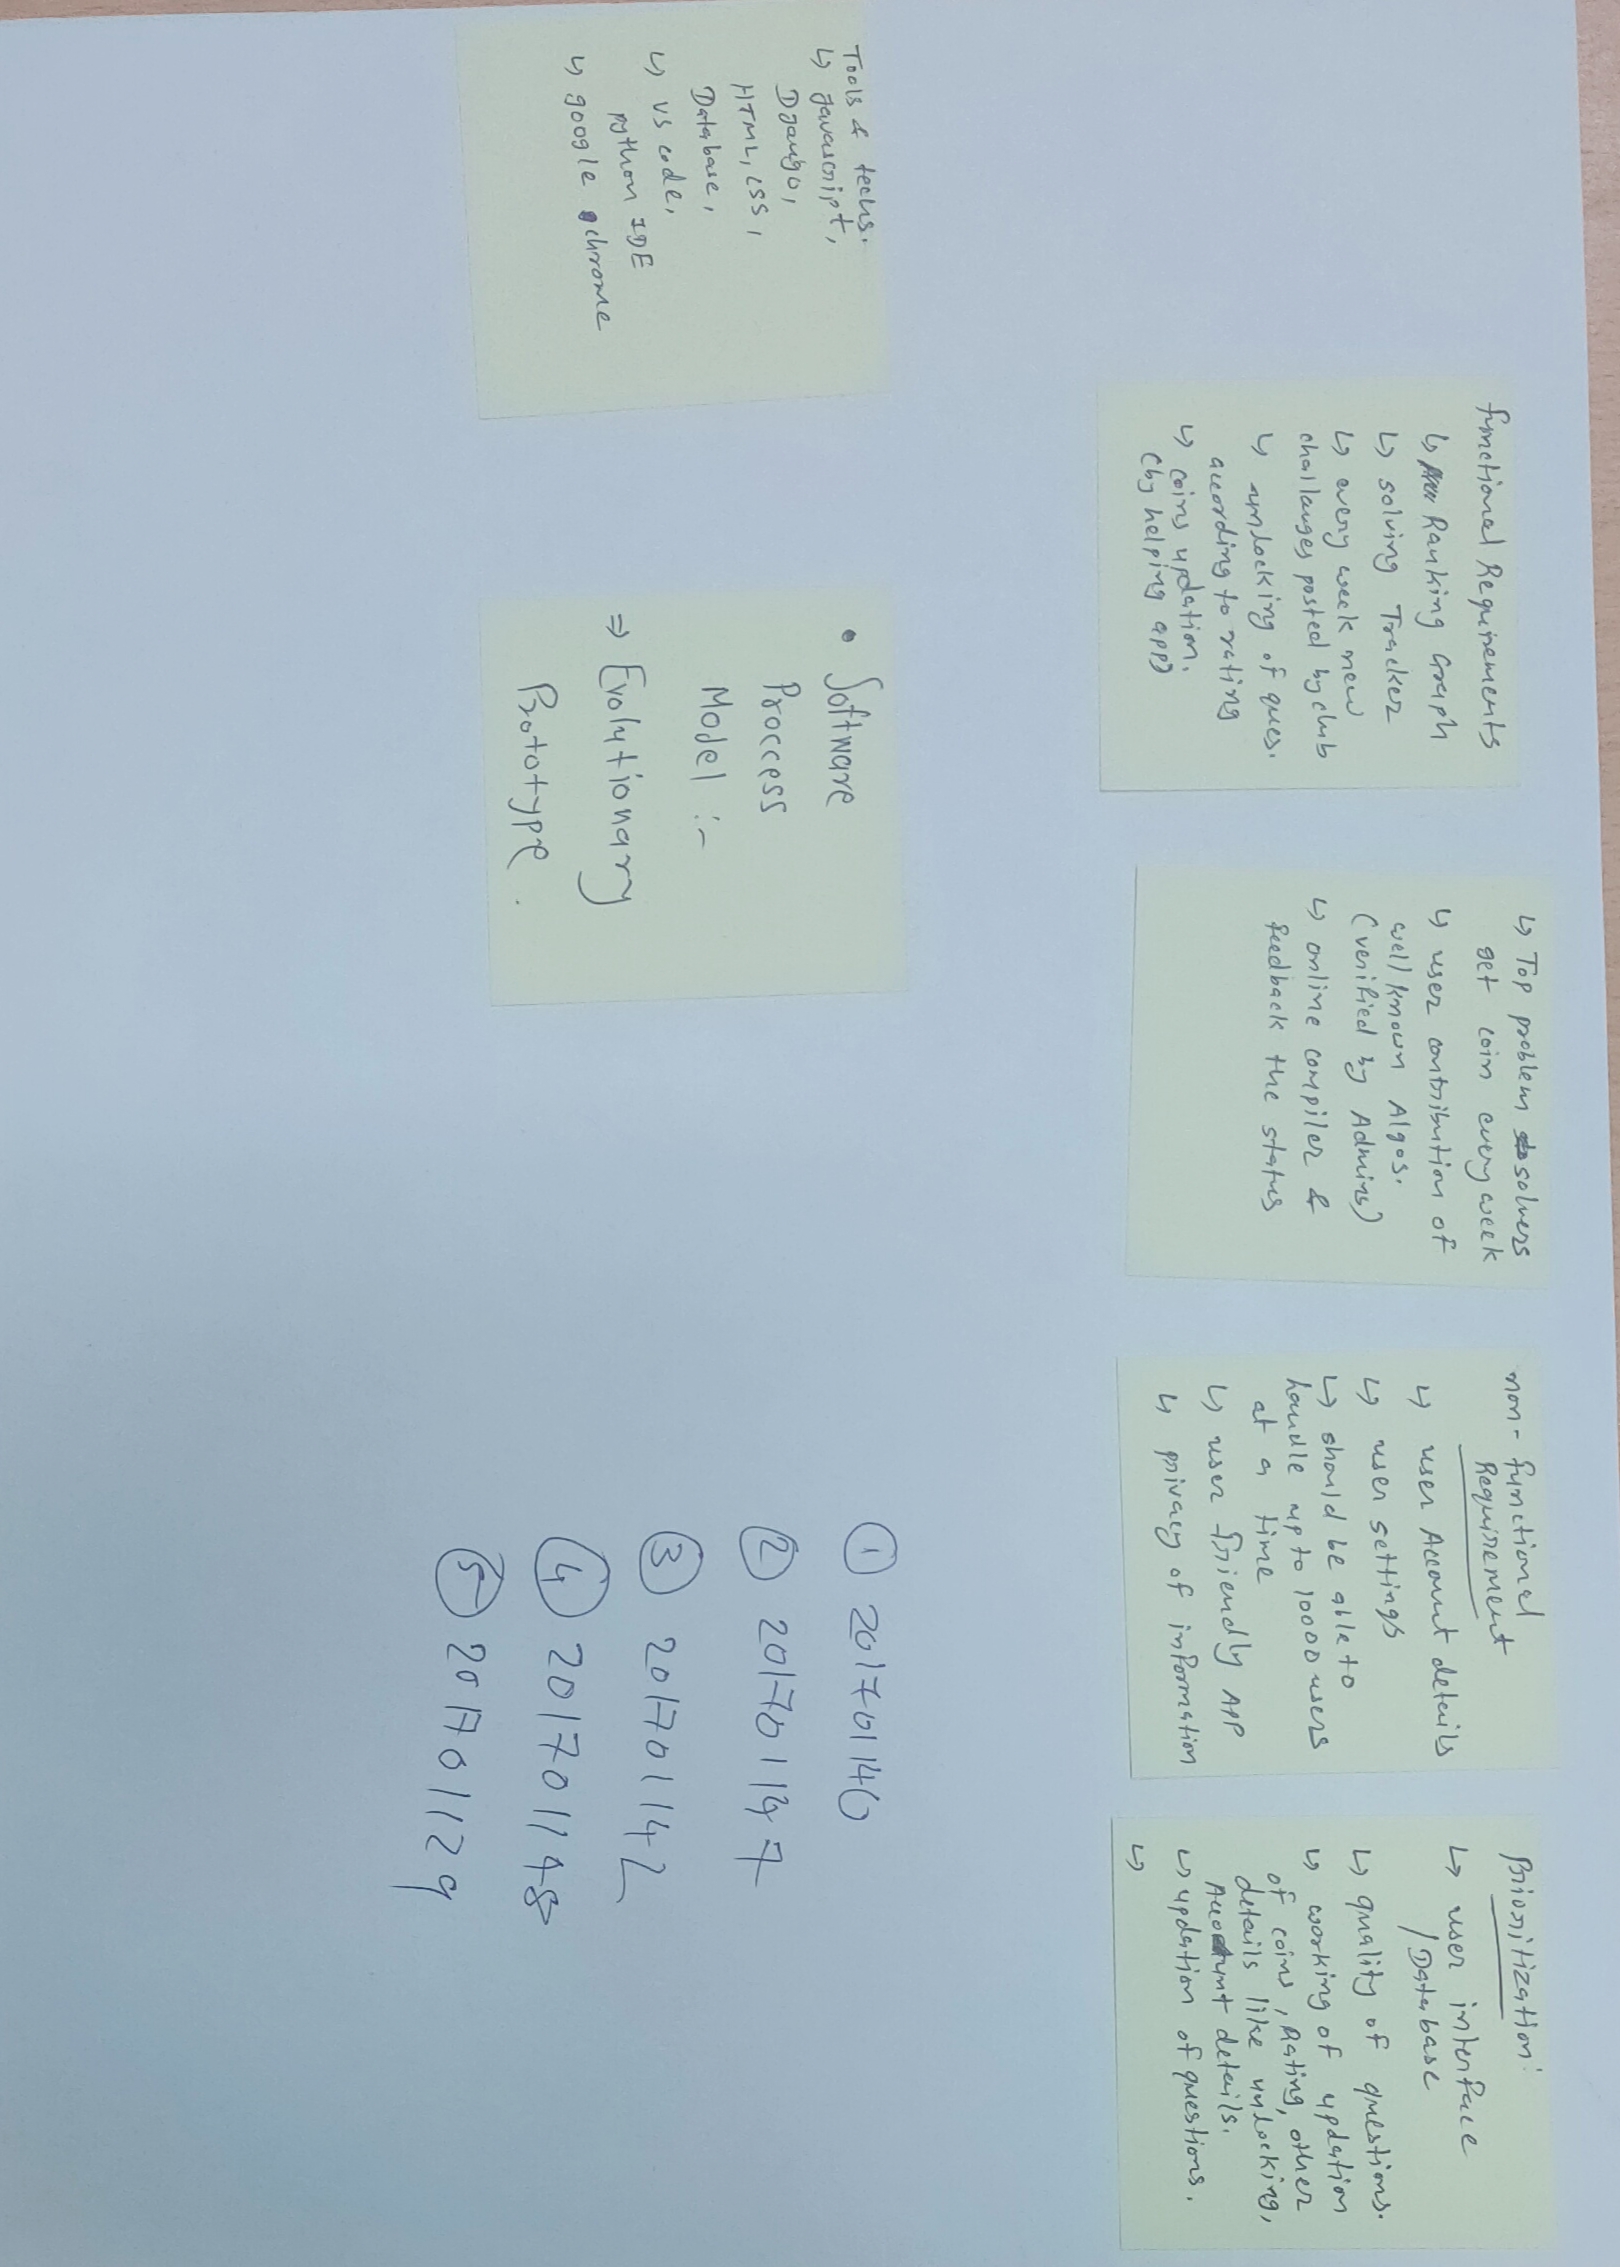 functional Requirements
↳ Ranking Graph
↳ solving Tracker
↳ every week new
challanges posted by club
↳ unlocking of ques.
according to rating
↳ coins updation.
(by helping app)
↳ Top problem solvers
get coin every week
↳ user contribution of
well known Algos.
(verified by Admins)
↳ online compiler &
feedback the status
non-functional
Requirement
↳ user Account details
↳ user settings
↳ should be able to
handle up to 10000 users
at a time
↳ user friendly APP
↳ privacy of information
Prioritization:
↳ user interface
/Database
↳ quality of questions.
↳ working of updation
of coins, Rating, other
details like unlocking,
Account details.
↳ updation of questions.
↳
Tools & techs.
↳ Javascript,
Django,
HTML, CSS,
Database,
↳ VS code,
python IDE
↳ google chrome
• Software
Proccess
Model :-
⇒ Evolutionary
Prototype.
① 201701140
② 201701147
③ 201701142
④ 201701148
⑤ 201701129